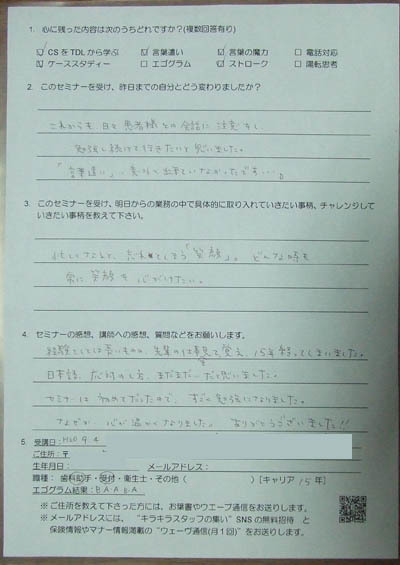 1. 心に残った内容は次のうちどれですか?(複数回答有り)
☑ CSをTDLから学ぶ ☑ 言葉遣い ☑ 言葉の魔力 □ 電話対応
☑ ケーススタディー □ エゴグラム ☑ ストローク □ 陽転思考
2. このセミナーを受け、昨日までの自分とどう変わりましたか?
これからも、日々患者様との会話に注意をし、
勉強し続けて行きたいと思いました。
「言葉遣い」、意外と出来ていなかったです…。
3. このセミナーを受け、明日からの業務の中で具体的に取り入れていきたい事柄、チャレンジして
いきたい事柄を教えて下さい。
忙しくなると、忘れてしまう「笑顔」。どんな時も
常に笑顔を心がけたい。
4. セミナーの感想、講師への感想、質問などをお願いします。
経験としては長いものの、先輩の仕事見て覚え、15年経ってしまいました。
日本語、応対のし方、まだまだ…だと思いました。
セミナーは初めてだったので、すごく勉強になりました。
なぜか、心が温かくなりました。ありがとうございました!!
5 受講日:H20 9.2
ご住所:〒
生年月日: メールアドレス:
職種: 歯科助手・受付・衛生士・その他( )[キャリア 15年]
エゴグラム結果:BAABA
※ご住所を教えて下さった方には、お葉書やウエーブ通信をお送りします。
※メールアドレスには、“キラキラスタッフの集い”SNSの無料招待 と
保険情報やマナー情報満載の“ウェーヴ通信(月1回)”をお送りします。